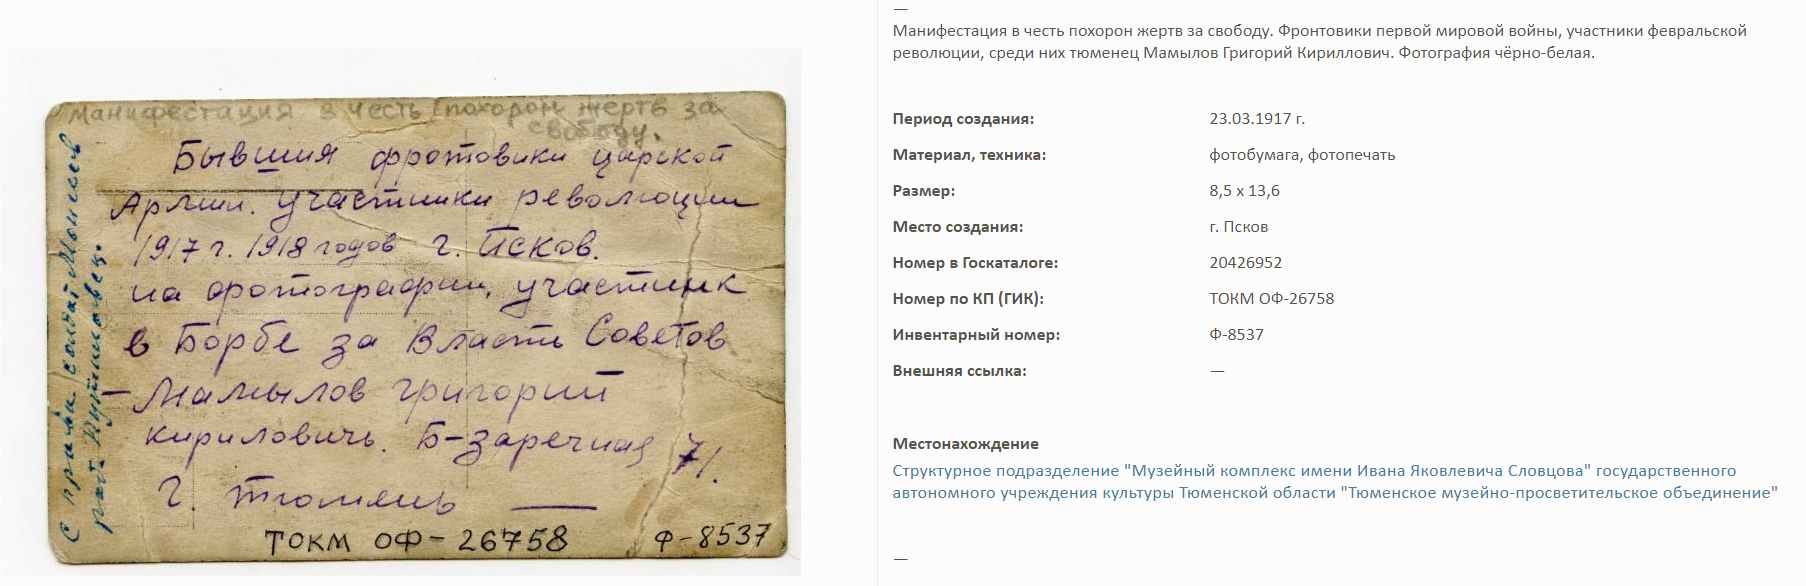 манифестация в честь похорон жертв за
свободу.
Бывшия фротовики царской
Армии. участники революции
1917 г. 1918 годов г. Псков.
на фотографии, участник
в Борбе за Власть Советов
— Мамылов григорий
кириловичь. Б-заречная 71.
г. тюмень —
ТОКМ ОФ-26758
Ф-8537
С права солдат
—
Манифестация в честь похорон жертв за свободу. Фронтовики первой мировой войны, участники февральской
революции, среди них тюменец Мамылов Григорий Кириллович. Фотография чёрно-белая.
Период создания: 23.03.1917 г.
Материал, техника: фотобумага, фотопечать
Размер: 8,5 х 13,6
Место создания: г. Псков
Номер в Госкаталоге: 20426952
Номер по КП (ГИК): ТОКМ ОФ-26758
Инвентарный номер: Ф-8537
Внешняя ссылка: —
Местонахождение
Структурное подразделение "Музейный комплекс имени Ивана Яковлевича Словцова" государственного
автономного учреждения культуры Тюменской области "Тюменское музейно-просветительское объединение"
—